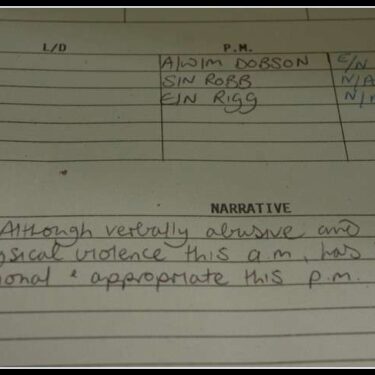 L/D P.M.
A/W/M DOBSON E/N
S/N ROBB N/A
E/N RIGG N/
NARRATIVE
Although verbally abusive and
ysical violence this a.m, has
ional & appropriate this p.m.